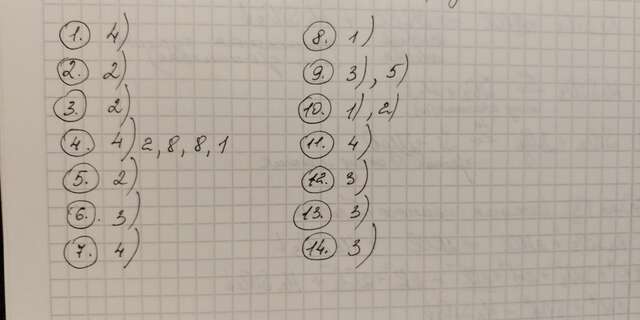 1. 4)
2. 2)
3. 2)
4. 4) 2, 8, 8, 1
5. 2)
6. 3)
7. 4)
8. 1)
9. 3), 5)
10. 1), 2)
11. 4)
12. 3)
13. 3)
14. 3)